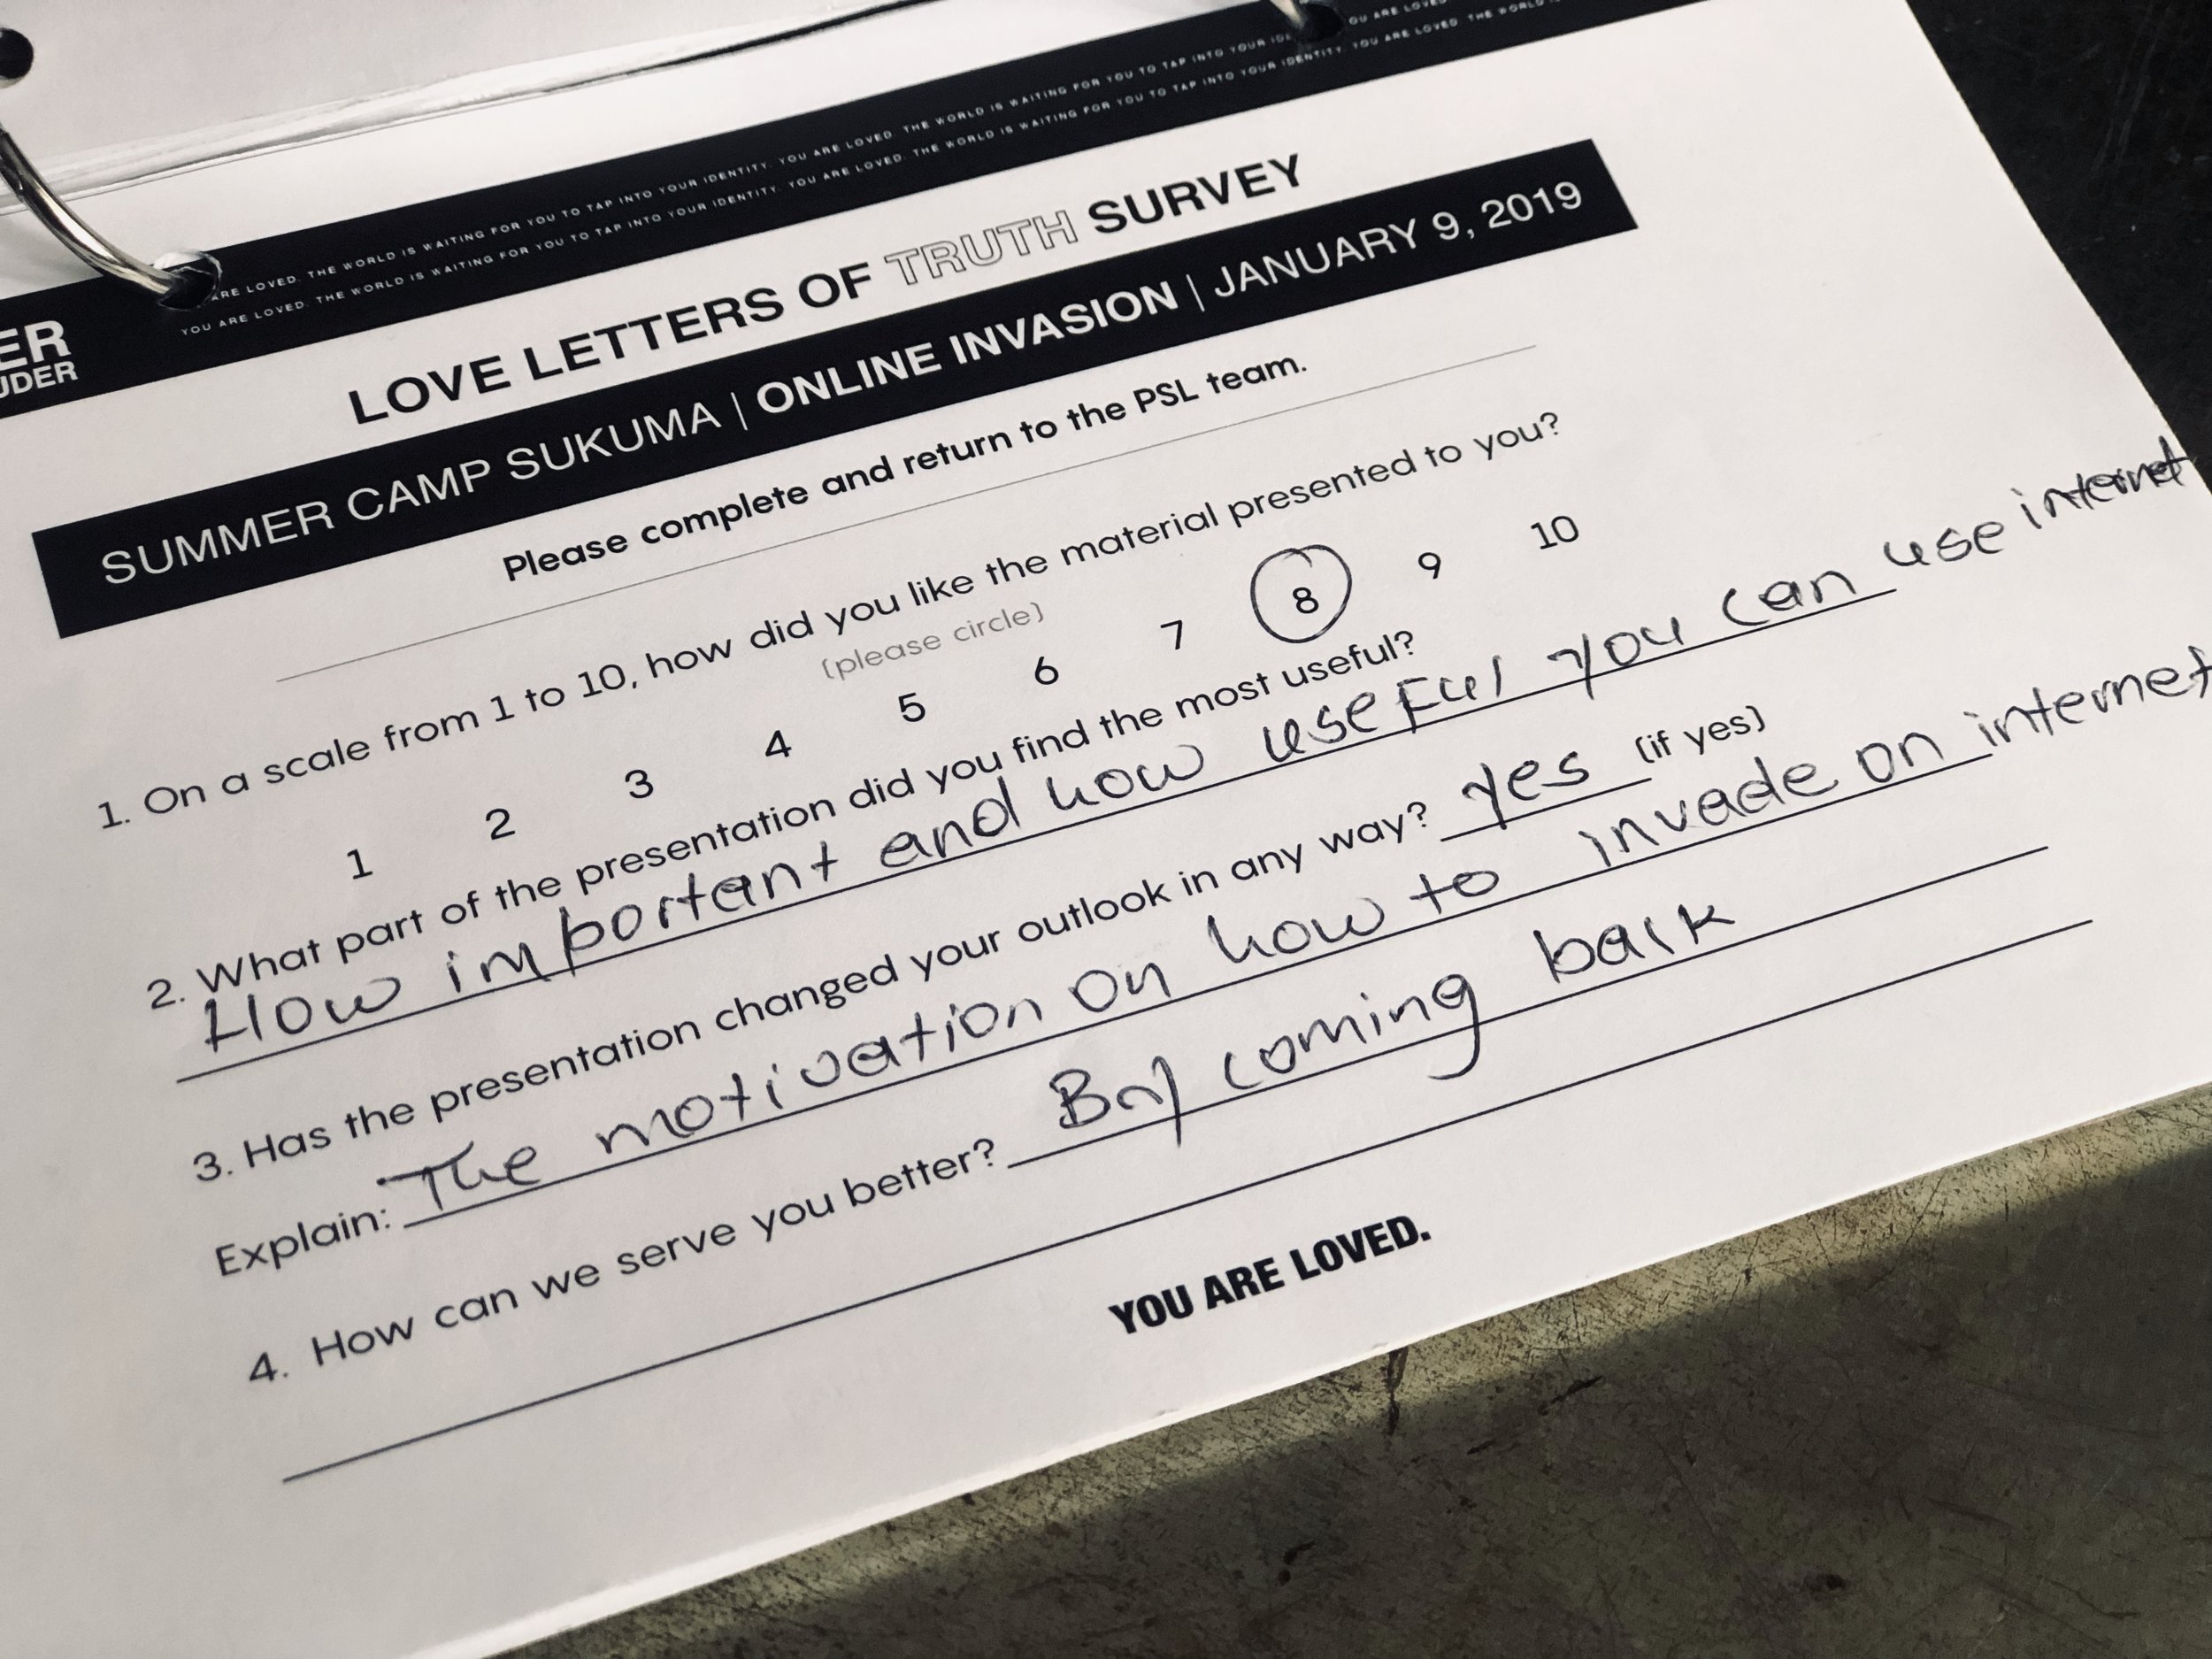 YOU ARE LOVED. THE WORLD IS
ARE LOVED. THE WORLD IS WAITING FOR YOU TO TAP INTO YOUR IDENTITY. YOU ARE LOVED. THE WORLD IS WAITING FOR YOU TO TAP INTO YOUR OU ARE LOVED
YOU ARE LOVED. THE WORLD IS WAITING FOR YOU TO TAP INTO YOUR IDENTITY. YOU ARE LOVED. THE WORLD IS WAITING FOR YOU TO TAP INTO YOUR IDENTITY. YOU ARE LOVED. THE WORLD IS
ER
UDER
LOVE LETTERS OF TRUTH SURVEY
SUMMER CAMP SUKUMA | ONLINE INVASION | JANUARY 9, 2019
Please complete and return to the PSL team.
1. On a scale from 1 to 10, how did you like the material presented to you?
(please circle)
1 2 3 4 5 6 7 8 9 10
2. What part of the presentation did you find the most useful?
How important and how useful you can use internet
3. Has the presentation changed your outlook in any way? yes (if yes)
Explain: The motivation on how to invade on internet
4. How can we serve you better? By coming back
YOU ARE LOVED.